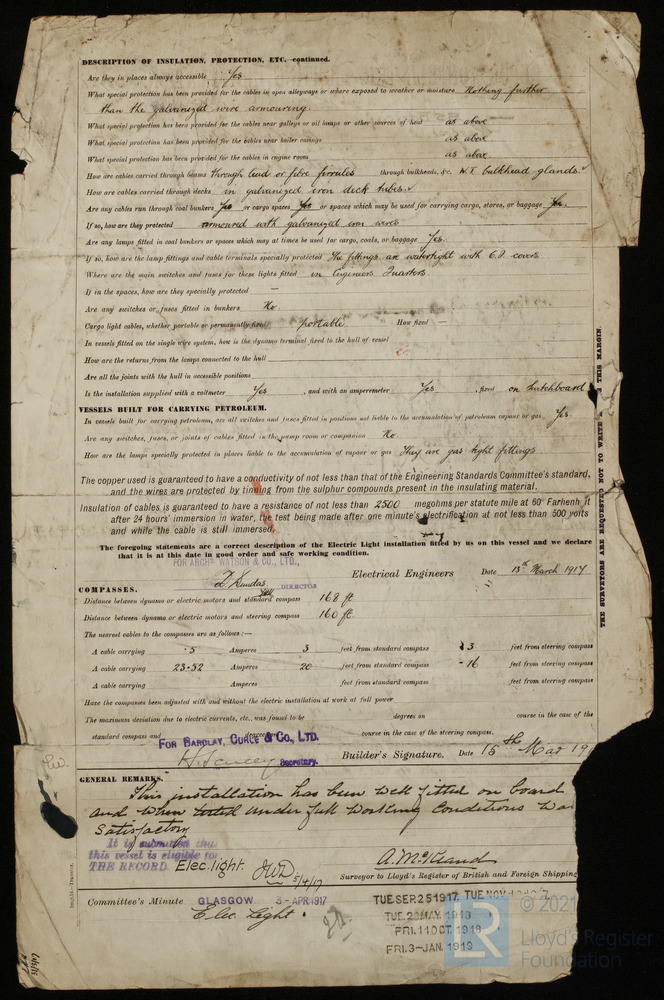 DESCRIPTION OF INSULATION, PROTECTION, ETC.—continued.
Are they in places always accessible Yes
What special protection has been provided for the cables in open alleyways or where exposed to weather or moisture Nothing further
than the galvanized wire armouring.
What special protection has been provided for the cables near galleys or oil lamps or other sources of heat as above
What special protection has been provided for the cables near boiler casings as above
What special protection has been provided for the cables in engine room as above
How are cables carried through beams through lead or fibre ferrules through bulkheads, &c. W.T. bulkhead glands.
How are cables carried through decks in galvanized iron deck tubes.
Are any cables run through coal bunkers Yes or cargo spaces Yes or spaces which may be used for carrying cargo, stores, or baggage Yes.
If so, how are they protected armoured with galvanized iron wires
Are any lamps fitted in coal bunkers or spaces which may at times be used for cargo, coals, or baggage Yes.
If so, how are the lamp fittings and cable terminals specially protected The fittings are watertight with C.I. covers
Where are the main switches and fuses for these lights fitted in Engineers Quarters
If in the spaces, how are they specially protected —
Are any switches or fuses fitted in bunkers No
Cargo light cables, whether portable or permanently fixed portable How fixed —
In vessels fitted on the single wire system, how is the dynamo terminal fixed to the hull of vessel
How are the returns from the lamps connected to the hull
Are all the joints with the hull in accessible positions
Is the installation supplied with a voltmeter Yes , and with an amperemeter Yes , fixed on switchboard
VESSELS BUILT FOR CARRYING PETROLEUM.
In vessels built for carrying petroleum, are all switches and fuses fitted in positions not liable to the accumulation of petroleum vapour or gas Yes.
Are any switches, fuses, or joints of cables fitted in the pump room or companion No
How are the lamps specially protected in places liable to the accumulation of vapour or gas They are gas tight fittings
The copper used is guaranteed to have a conductivity of not less than that of the Engineering Standards Committee's standard,
and the wires are protected by tinning from the sulphur compounds present in the insulating material.
Insulation of cables is guaranteed to have a resistance of not less than 2500 megohms per statute mile at 60° Farhenheit
after 24 hours' immersion in water, the test being made after one minute's electrification at not less than 500 volts
and while the cable is still immersed.
The foregoing statements are a correct description of the Electric Light installation fitted by us on this vessel and we declare
that it is at this date in good order and safe working condition.
FOR ARCHD WATSON & CO., LTD.,
DIRECTOR Electrical Engineers Date 13th March 1917
COMPASSES.
Distance between dynamo or electric motors and standard compass 168 ft
Distance between dynamo or electric motors and steering compass 160 ft
The nearest cables to the compasses are as follows:—
A cable carrying .5 Amperes 3 feet from standard compass 3 feet from steering compass
A cable carrying 23.52 Amperes 20 feet from standard compass 16 feet from steering compass
A cable carrying Amperes feet from standard compass feet from steering compass
Have the compasses been adjusted with and without the electric installation at work at full power
The maximum deviation due to electric currents, etc., was found to be degrees on course in the case of the
standard compass and degrees on course in the case of the steering compass.
FOR BARCLAY, CURLE & CO., LTD.
Secretary. Builder's Signature. Date 15th Mar 19
GENERAL REMARKS.
This installation has been well fitted on board
and when tested under full working conditions was
satisfactory
It is submitted that
this vessel is eligible for
THE RECORD. Elec. light. JWD 5/4/17
Surveyor to Lloyd's Register of British and Foreign Shipping
Committee's Minute GLASGOW 3-APR 1917
Elec. Light.
TUE. SEP. 25 1917. TUE. NOV
TUE. 28 MAY. 1918
FRI. 11 OCT. 1918
FRI. 3-JAN. 1919
THE SURVEYORS ARE REQUESTED NOT TO WRITE THIS MARGIN.
© 2021
LR
Lloyd's Register
Foundation